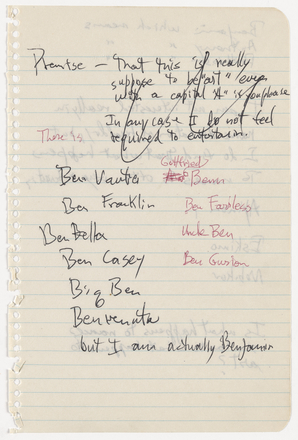 Premise – That this is really
suppose to be "art" even
with a capital "A" if you please
In any case I do not feel
required to entertain.
There is
Ben Vautier
Gottfried
Benn
Ben Franklin
Ben Bella
Uncle Ben
Ben Casey
Ben Gurion
Big Ben
Benvenuto
but I am actually Benjamin